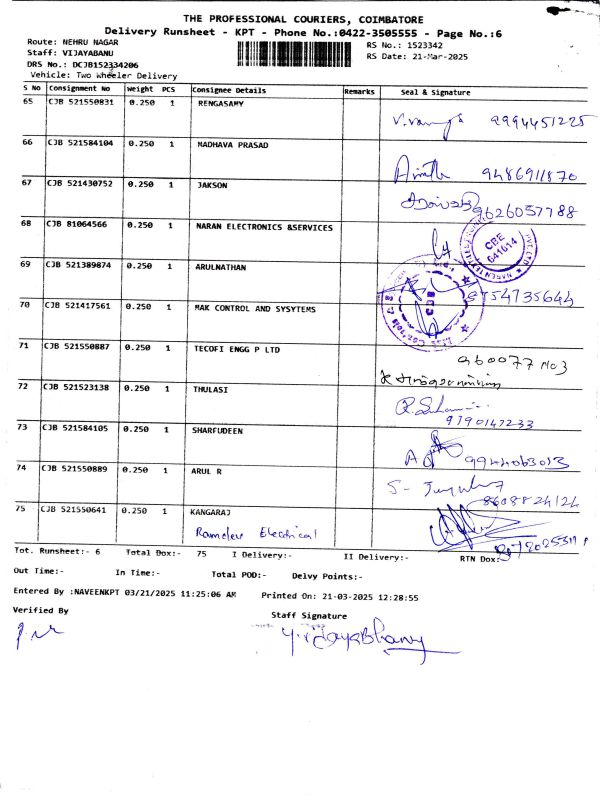 THE PROFESSIONAL COURIERS, COIMBATORE
Delivery Runsheet - KPT - Phone No.:0422-3505555 - Page No.:6
Route: NEHRU NAGAR
RS No.: 1523342
Staff: VIJAYABANU
RS Date: 21-Mar-2025
DRS No.: DCJB152334206
Vehicle: Two Wheeler Delivery
S No Consignment No Weight PCS Consignee Details Remarks Seal & Signature
65 CJB 521550831 0.250 1 RENGASAMY
9994451225
66 CJB 521584104 0.250 1 MADHAVA PRASAD
9486911870
67 CJB 521430752 0.250 1 JAKSON
9626057788
68 CJB 81064566 0.250 1 NARAN ELECTRONICS &SERVICES
CBE
641014
69 CJB 521389874 0.250 1 ARULNATHAN
9754735644
70 CJB 521417561 0.250 1 MAK CONTROL AND SYSYTEMS
71 CJB 521550887 0.250 1 TECOFI ENGG P LTD
72 CJB 521523138 0.250 1 THULASI
9790147233
73 CJB 521584105 0.250 1 SHARFUDEEN
9944063013
74 CJB 521550889 0.250 1 ARUL R
8608824124
75 CJB 521550641 0.250 1 KANGARAJ
Ramdev Electrical
Tot. Runsheet:- 6 Total Dox:- 75 I Delivery:- II Delivery:- RTN Dox:-
Out Time:- In Time:- Total POD:- Delvy Points:-
Entered By :NAVEENKPT 03/21/2025 11:25:06 AM Printed On: 21-03-2025 12:28:55
Verified By Staff Signature